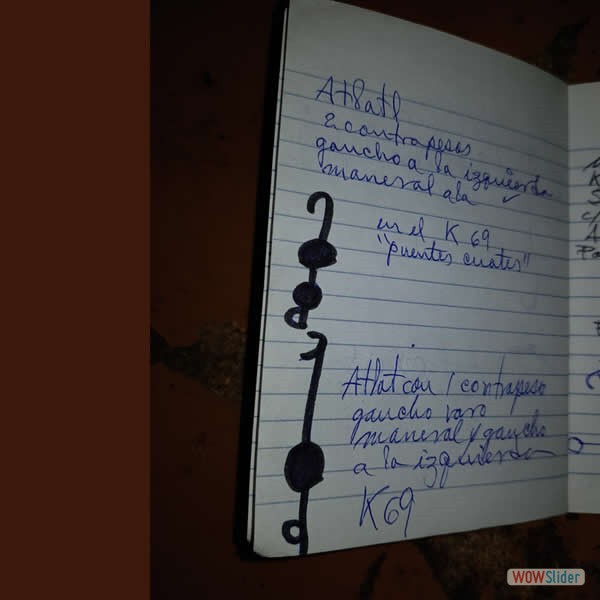 Atlatl
2 contrapesos
gaucho a la izquierda
maneral a la
en el K 69
"puentes cuates"
Atlat con 1 contrapeso
gaucho raro
maneral y gaucho
a la izquierda
K69
WOWSlider